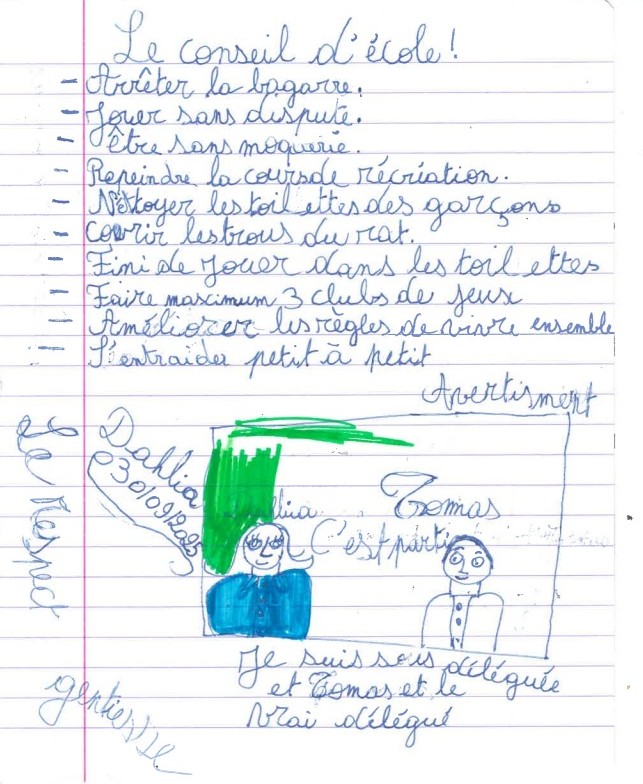 Le conseil d'école !
- Arrêter la bagarre.
- Jouer sans dispute.
- Être sans moquerie.
- Repeindre la cours de récréation.
- Nettoyer les toilettes des garçons
- Couvrir les trous du rat.
- Fini de jouer dans les toilettes
- Faire maximum 3 clubs de jeux
- Améliorer les règles de vivre ensemble
- S'entraider petit à petit
Avertisment
Le Respect
Dahlia
30/09/2025
Dahlia
Tomas
C'est parti
Je suis sous déléguée
et Tomas et le
vrai délégué
gentiesse